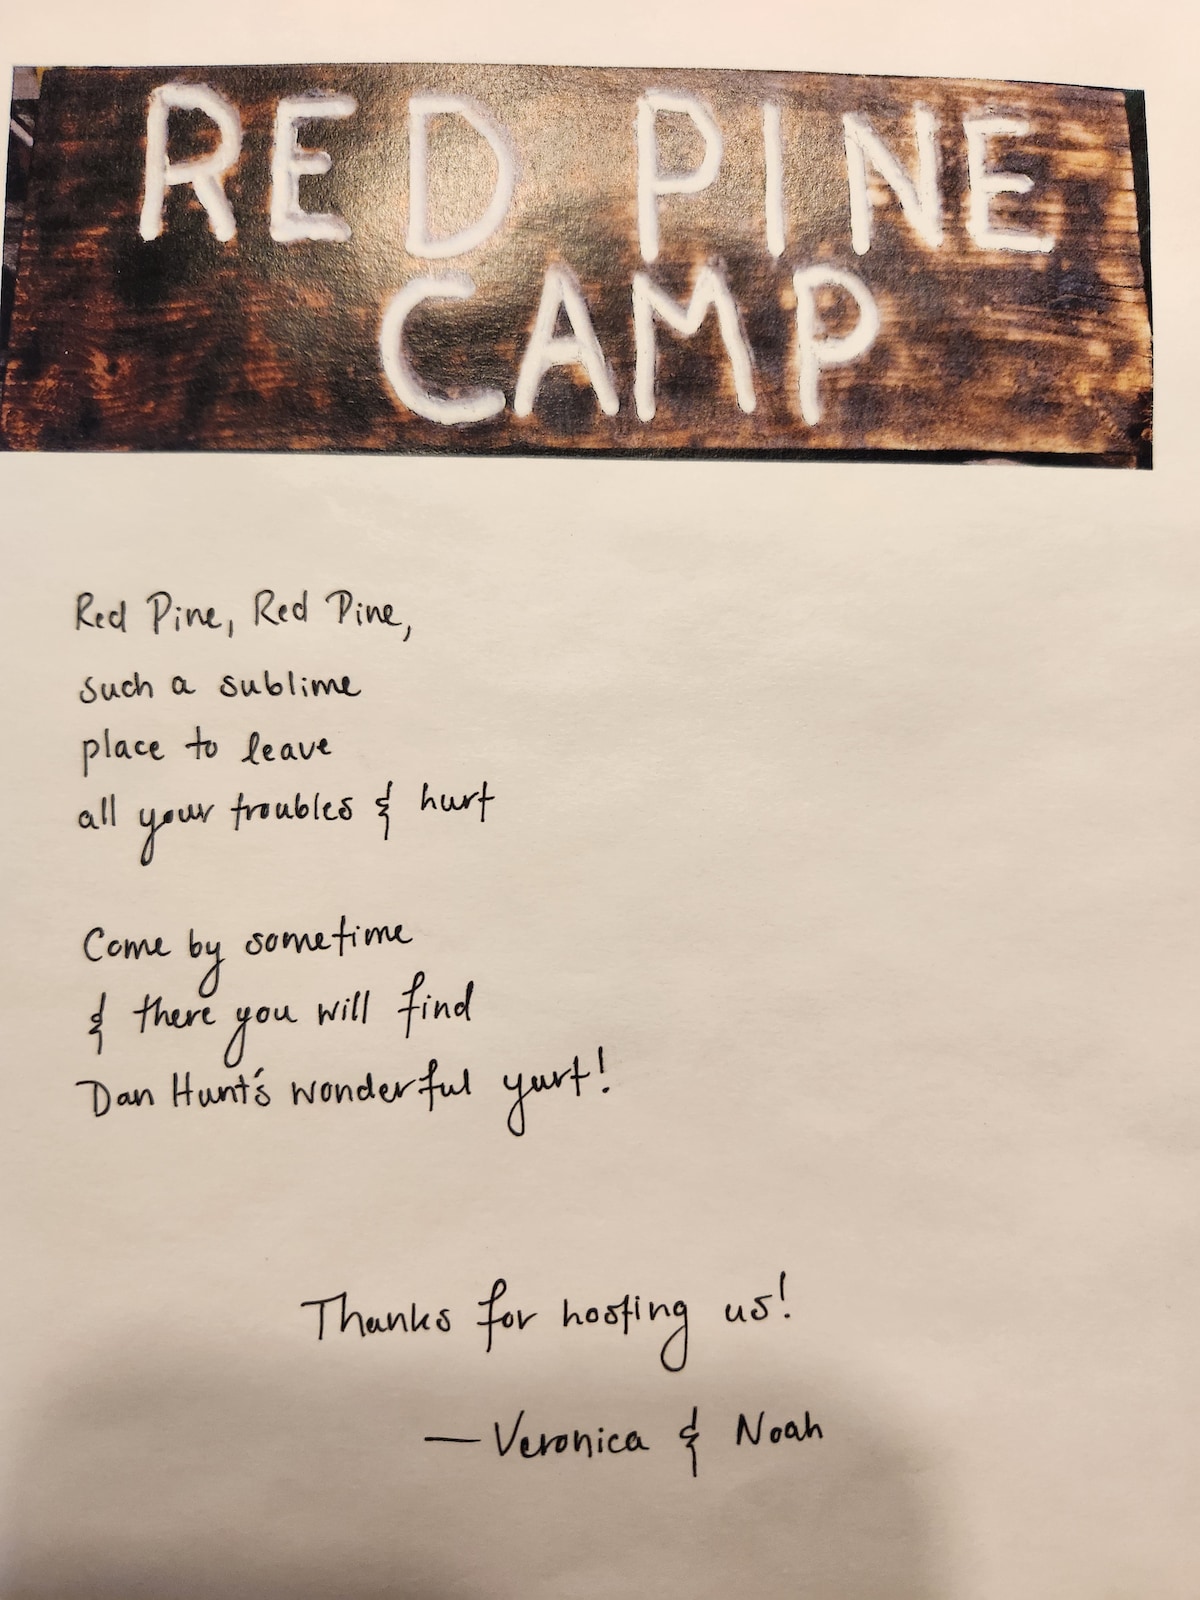 RED PINE
CAMP
Red Pine, Red Pine,
such a sublime
place to leave
all your troubles & hurt
Come by sometime
& there you will find
Dan Hunt's wonderful yurt!
Thanks for hosting us!
— Veronica & Noah